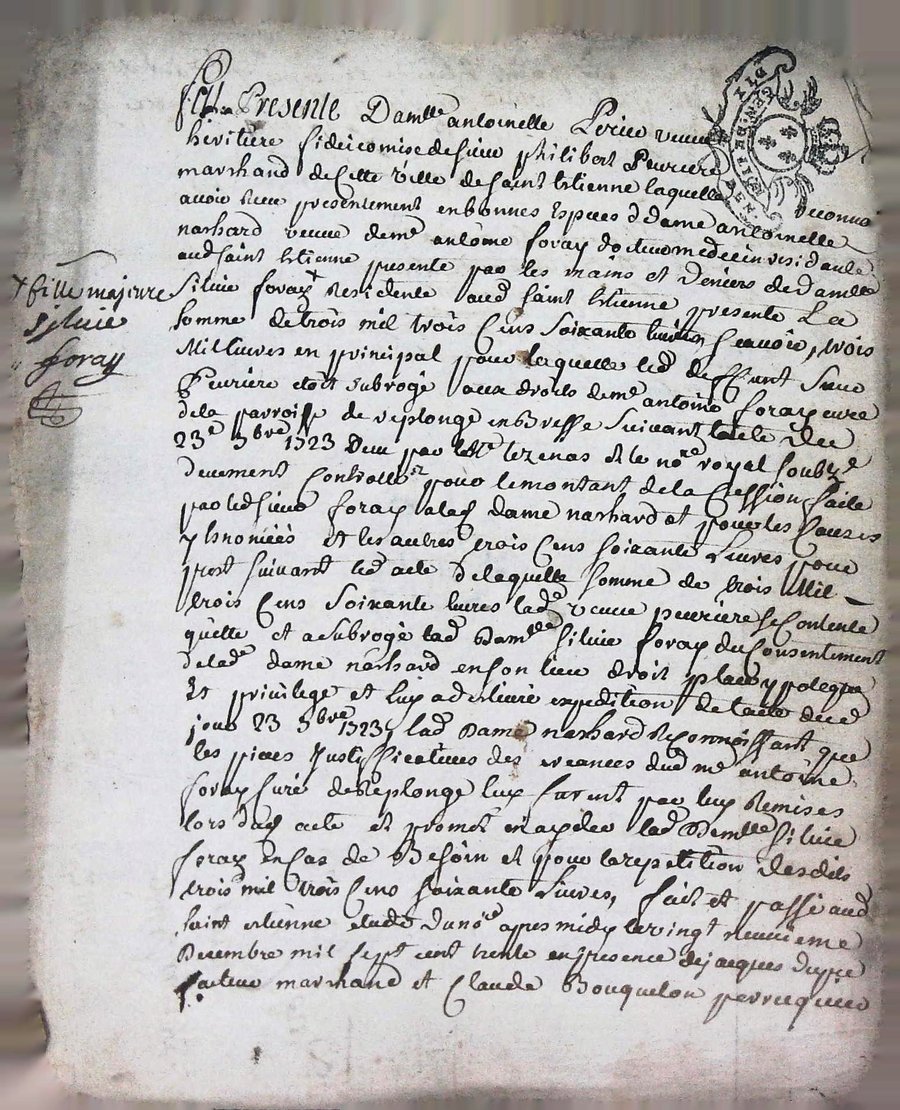 Presente Damlle antoinette Perier veuve
héritière fideicomise de sieur philibert Peurière
marchand de Cette ville de saint Etienne laquelle reconnu
avoir receu presentement en bonnes Espues de dame antoinette
narhard veuve de me antoine foray docteur medecin residante
aud saint Etienne presente par les mains et deniers de damlle
silvie foray residente aud saint Etienne presente La
somme de trois mil trois Cens soixante livres, scavoir, trois
Mil livres en principal pour laquelle led deffunt sieur
Peurière etoit subrogé aux droits de me antoine foray curé
de la parroisse de replonge en Bresse suivant lacte du
23e 9bre 1723 receu par Me tezenas et le nore royal soubzé
deuement Controllé pour le montant de la Cession faite
par led sieur foray a lad dame narhard et pour les Causes
y Enoncéés et les autres trois Cens soixante Livres pour
port suivant led acte de laquelle somme de trois Mil
trois Cens soixante livres lade veuve peurière se Contente
quitte et a subrogé lad Damlle silvie foray du Consentement
de lade dame narhard en son lieu droit place ypoteque
Et privilege et luy a delivré expedition de lacte dud
jour 23 9bre 1723, lad Dame narhard reconnoissant que
les pieces justifficatives des creances dud me antoine
foray Curé de Replonge luy furent par luy Remises
lors dud acte et promet en ayder lad Damlle silvie
foray en Cas de Besoin et pour la repetition desdits
trois mil trois Cens soixante Livres, fait et passé aud
saint etienne etude du nre apres midy le vingt neuvieme
Decembre mil sept cent trente en presence de jacques dupre
facteur marchand et Claude Bouqueton perruquier
fille majeure
silvie
foray
DIX
DEN.